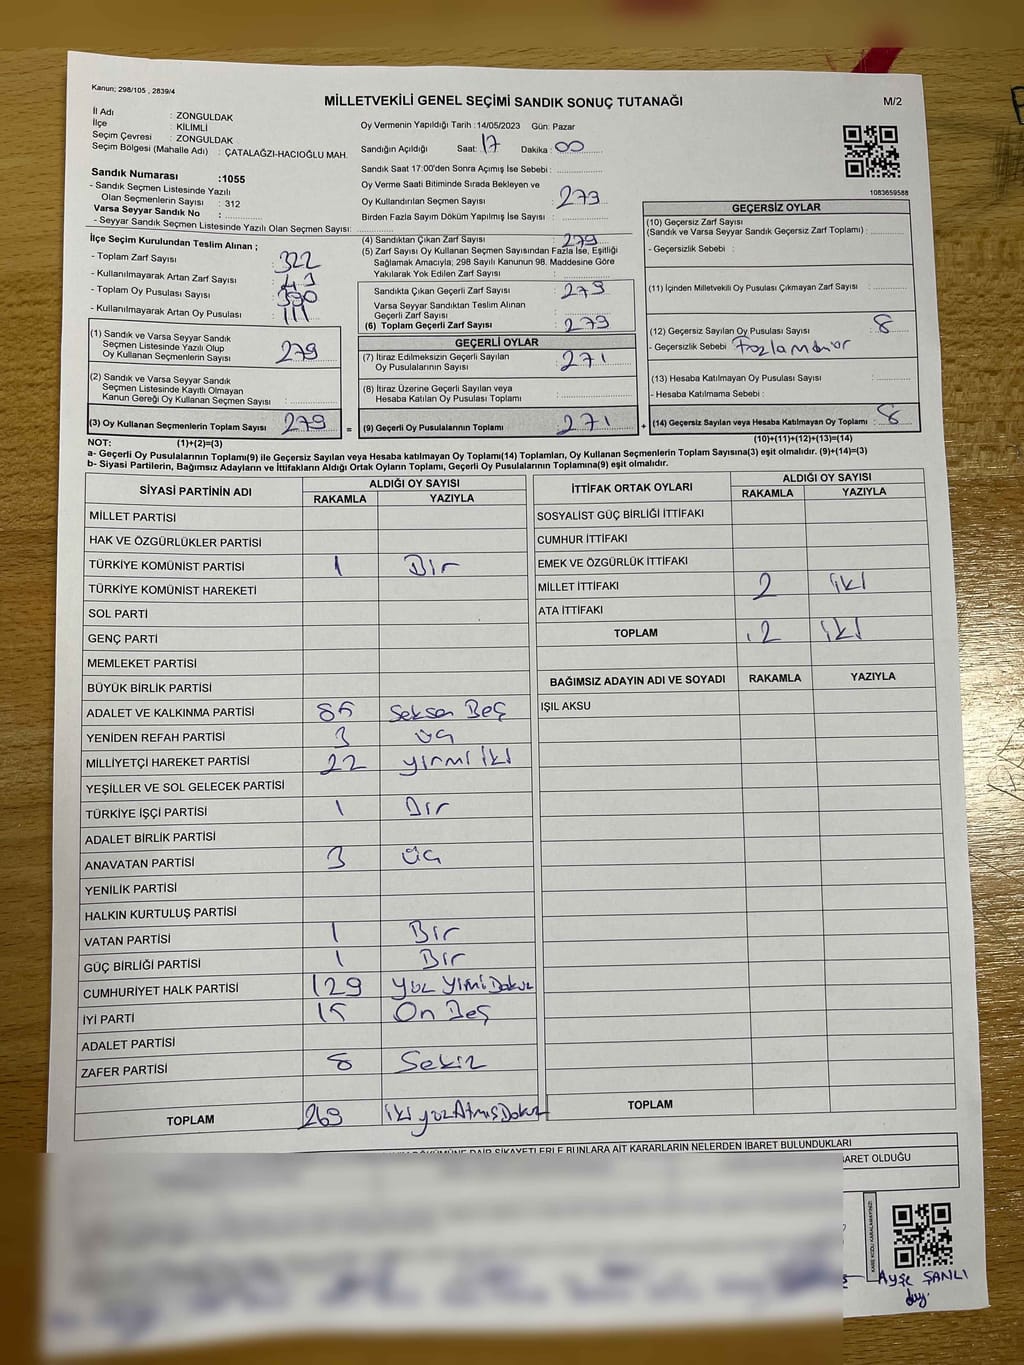 Kanun; 298/105 , 2839/4
MİLLETVEKİLİ GENEL SEÇİMİ SANDIK SONUÇ TUTANAĞI
M/2
İl Adı : ZONGULDAK
İlçe : KİLİMLİ
Seçim Çevresi : ZONGULDAK
Seçim Bölgesi (Mahalle Adı) : ÇATALAĞZI-HACIOĞLU MAH.
Sandık Numarası :1055
- Sandık Seçmen Listesinde Yazılı
Olan Seçmenlerin Sayısı : 312
Varsa Seyyar Sandık No :
- Seyyar Sandık Seçmen Listesinde Yazılı Olan Seçmen Sayısı:
Oy Vermenin Yapıldığı Tarih :14/05/2023 Gün: Pazar
Sandığın Açıldığı Saat: 17 Dakika: 00
Sandık Saat 17:00'den Sonra Açımış İse Sebebi :
Oy Verme Saati Bitiminde Sırada Bekleyen ve
Oy Kullandırılan Seçmen Sayısı : 279
Birden Fazla Sayım Döküm Yapılmış İse Sayısı :
1083659588
İlçe Seçim Kurulundan Teslim Alınan ;
- Toplam Zarf Sayısı : 322
- Kullanılmayarak Artan Zarf Sayısı : 43
- Toplam Oy Pusulası Sayısı : 390
- Kullanılmayarak Artan Oy Pusulası : 111
(1) Sandık ve Varsa Seyyar Sandık
Seçmen Listesinde Yazılı Olup
Oy Kullanan Seçmenlerin Sayısı : 279
(2) Sandık ve Varsa Seyyar Sandık
Seçmen Listesinde Kayıtlı Olmayan
Kanun Gereği Oy Kullanan Seçmen Sayısı :
(3) Oy Kullanan Seçmenlerin Toplam Sayısı : 279 =
(4) Sandıktan Çıkan Zarf Sayısı : 279
(5) Zarf Sayısı Oy Kullanan Seçmen Sayısından Fazla İse, Eşitliği
Sağlamak Amacıyla; 298 Sayılı Kanunun 98. Maddesine Göre
Yakılarak Yok Edilen Zarf Sayısı :
Sandıkta Çıkan Geçerli Zarf Sayısı : 279
Varsa Seyyar Sandıktan Teslim Alınan
Geçerli Zarf Sayısı :
(6) Toplam Geçerli Zarf Sayısı : 279
GEÇERLİ OYLAR
(7) İtiraz Edilmeksizin Geçerli Sayılan
Oy Pusulalarının Sayısı : 271
(8) İtiraz Üzerine Geçerli Sayılan veya
Hesaba Katılan Oy Pusulası Toplamı :
(9) Geçerli Oy Pusulalarının Toplamı : 271 +
GEÇERSİZ OYLAR
(10) Geçersiz Zarf Sayısı
(Sandık ve Varsa Seyyar Sandık Geçersiz Zarf Toplamı) :
- Geçersizlik Sebebi :
(11) İçinden Milletvekili Oy Pusulası Çıkmayan Zarf Sayısı :
(12) Geçersiz Sayılan Oy Pusulası Sayısı : 8
- Geçersizlik Sebebi :
(13) Hesaba Katılmayan Oy Pusulası Sayısı :
- Hesaba Katılmama Sebebi :
(14) Geçersiz Sayılan veya Hesaba Katılmayan Oy Toplamı : 8
NOT: (1)+(2)=(3)
(10)+(11)+(12)+(13)=(14)
a- Geçerli Oy Pusulalarının Toplamı(9) ile Geçersiz Sayılan veya Hesaba katılmayan Oy Toplamı(14) Toplamları, Oy Kullanan Seçmenlerin Toplam Sayısına(3) eşit olmalıdır. (9)+(14)=(3)
b- Siyasi Partilerin, Bağımsız Adayların ve İttifakların Aldığı Ortak Oyların Toplamı, Geçerli Oy Pusulalarının Toplamına(9) eşit olmalıdır.
SİYASİ PARTİNİN ADI ALDIĞI OY SAYISI
RAKAMLA YAZIYLA
MİLLET PARTİSİ
HAK VE ÖZGÜRLÜKLER PARTİSİ
TÜRKİYE KOMÜNİST PARTİSİ 1 Bir
TÜRKİYE KOMÜNİST HAREKETİ
SOL PARTİ
GENÇ PARTİ
MEMLEKET PARTİSİ
BÜYÜK BİRLİK PARTİSİ
ADALET VE KALKINMA PARTİSİ 85 Seksen Beş
YENİDEN REFAH PARTİSİ 3 üç
MİLLİYETÇİ HAREKET PARTİSİ 22 yirmi iki
YEŞİLLER VE SOL GELECEK PARTİSİ
TÜRKİYE İŞÇİ PARTİSİ 1 Bir
ADALET BİRLİK PARTİSİ
ANAVATAN PARTİSİ 3 üç
YENİLİK PARTİSİ
HALKIN KURTULUŞ PARTİSİ
VATAN PARTİSİ 1 Bir
GÜÇ BİRLİĞİ PARTİSİ 1 Bir
CUMHURİYET HALK PARTİSİ 129 yüz yirmi Dokuz
İYİ PARTİ 15 On Beş
ADALET PARTİSİ
ZAFER PARTİSİ 8 Sekiz
TOPLAM 269 iki yüz Atmış Dokuz
İTTİFAK ORTAK OYLARI ALDIĞI OY SAYISI
RAKAMLA YAZIYLA
SOSYALİST GÜÇ BİRLİĞİ İTTİFAKI
CUMHUR İTTİFAKI
EMEK VE ÖZGÜRLÜK İTTİFAKI
MİLLET İTTİFAKI 2 iki
ATA İTTİFAKI
TOPLAM 2 iki
BAĞIMSIZ ADAYIN ADI VE SOYADI RAKAMLA YAZIYLA
IŞIL AKSU
TOPLAM
ŞİKAYETLERLE BUNLARA AİT KARARLARIN NELERDEN İBARET BULUNDUKLARI
OLDUĞU
Ayşe ŞANLI